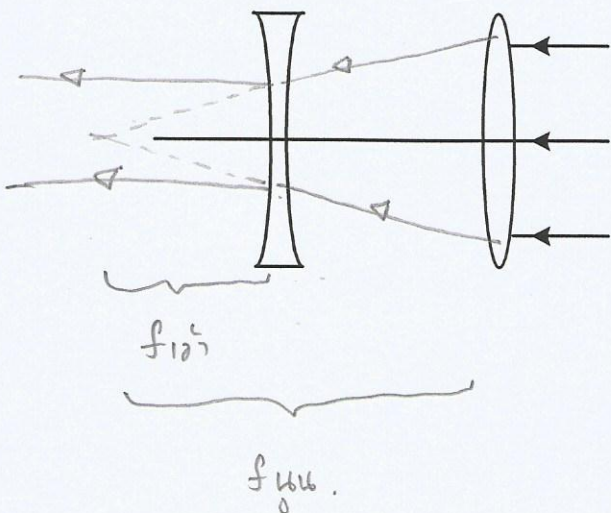 f เว้า
f นูน.